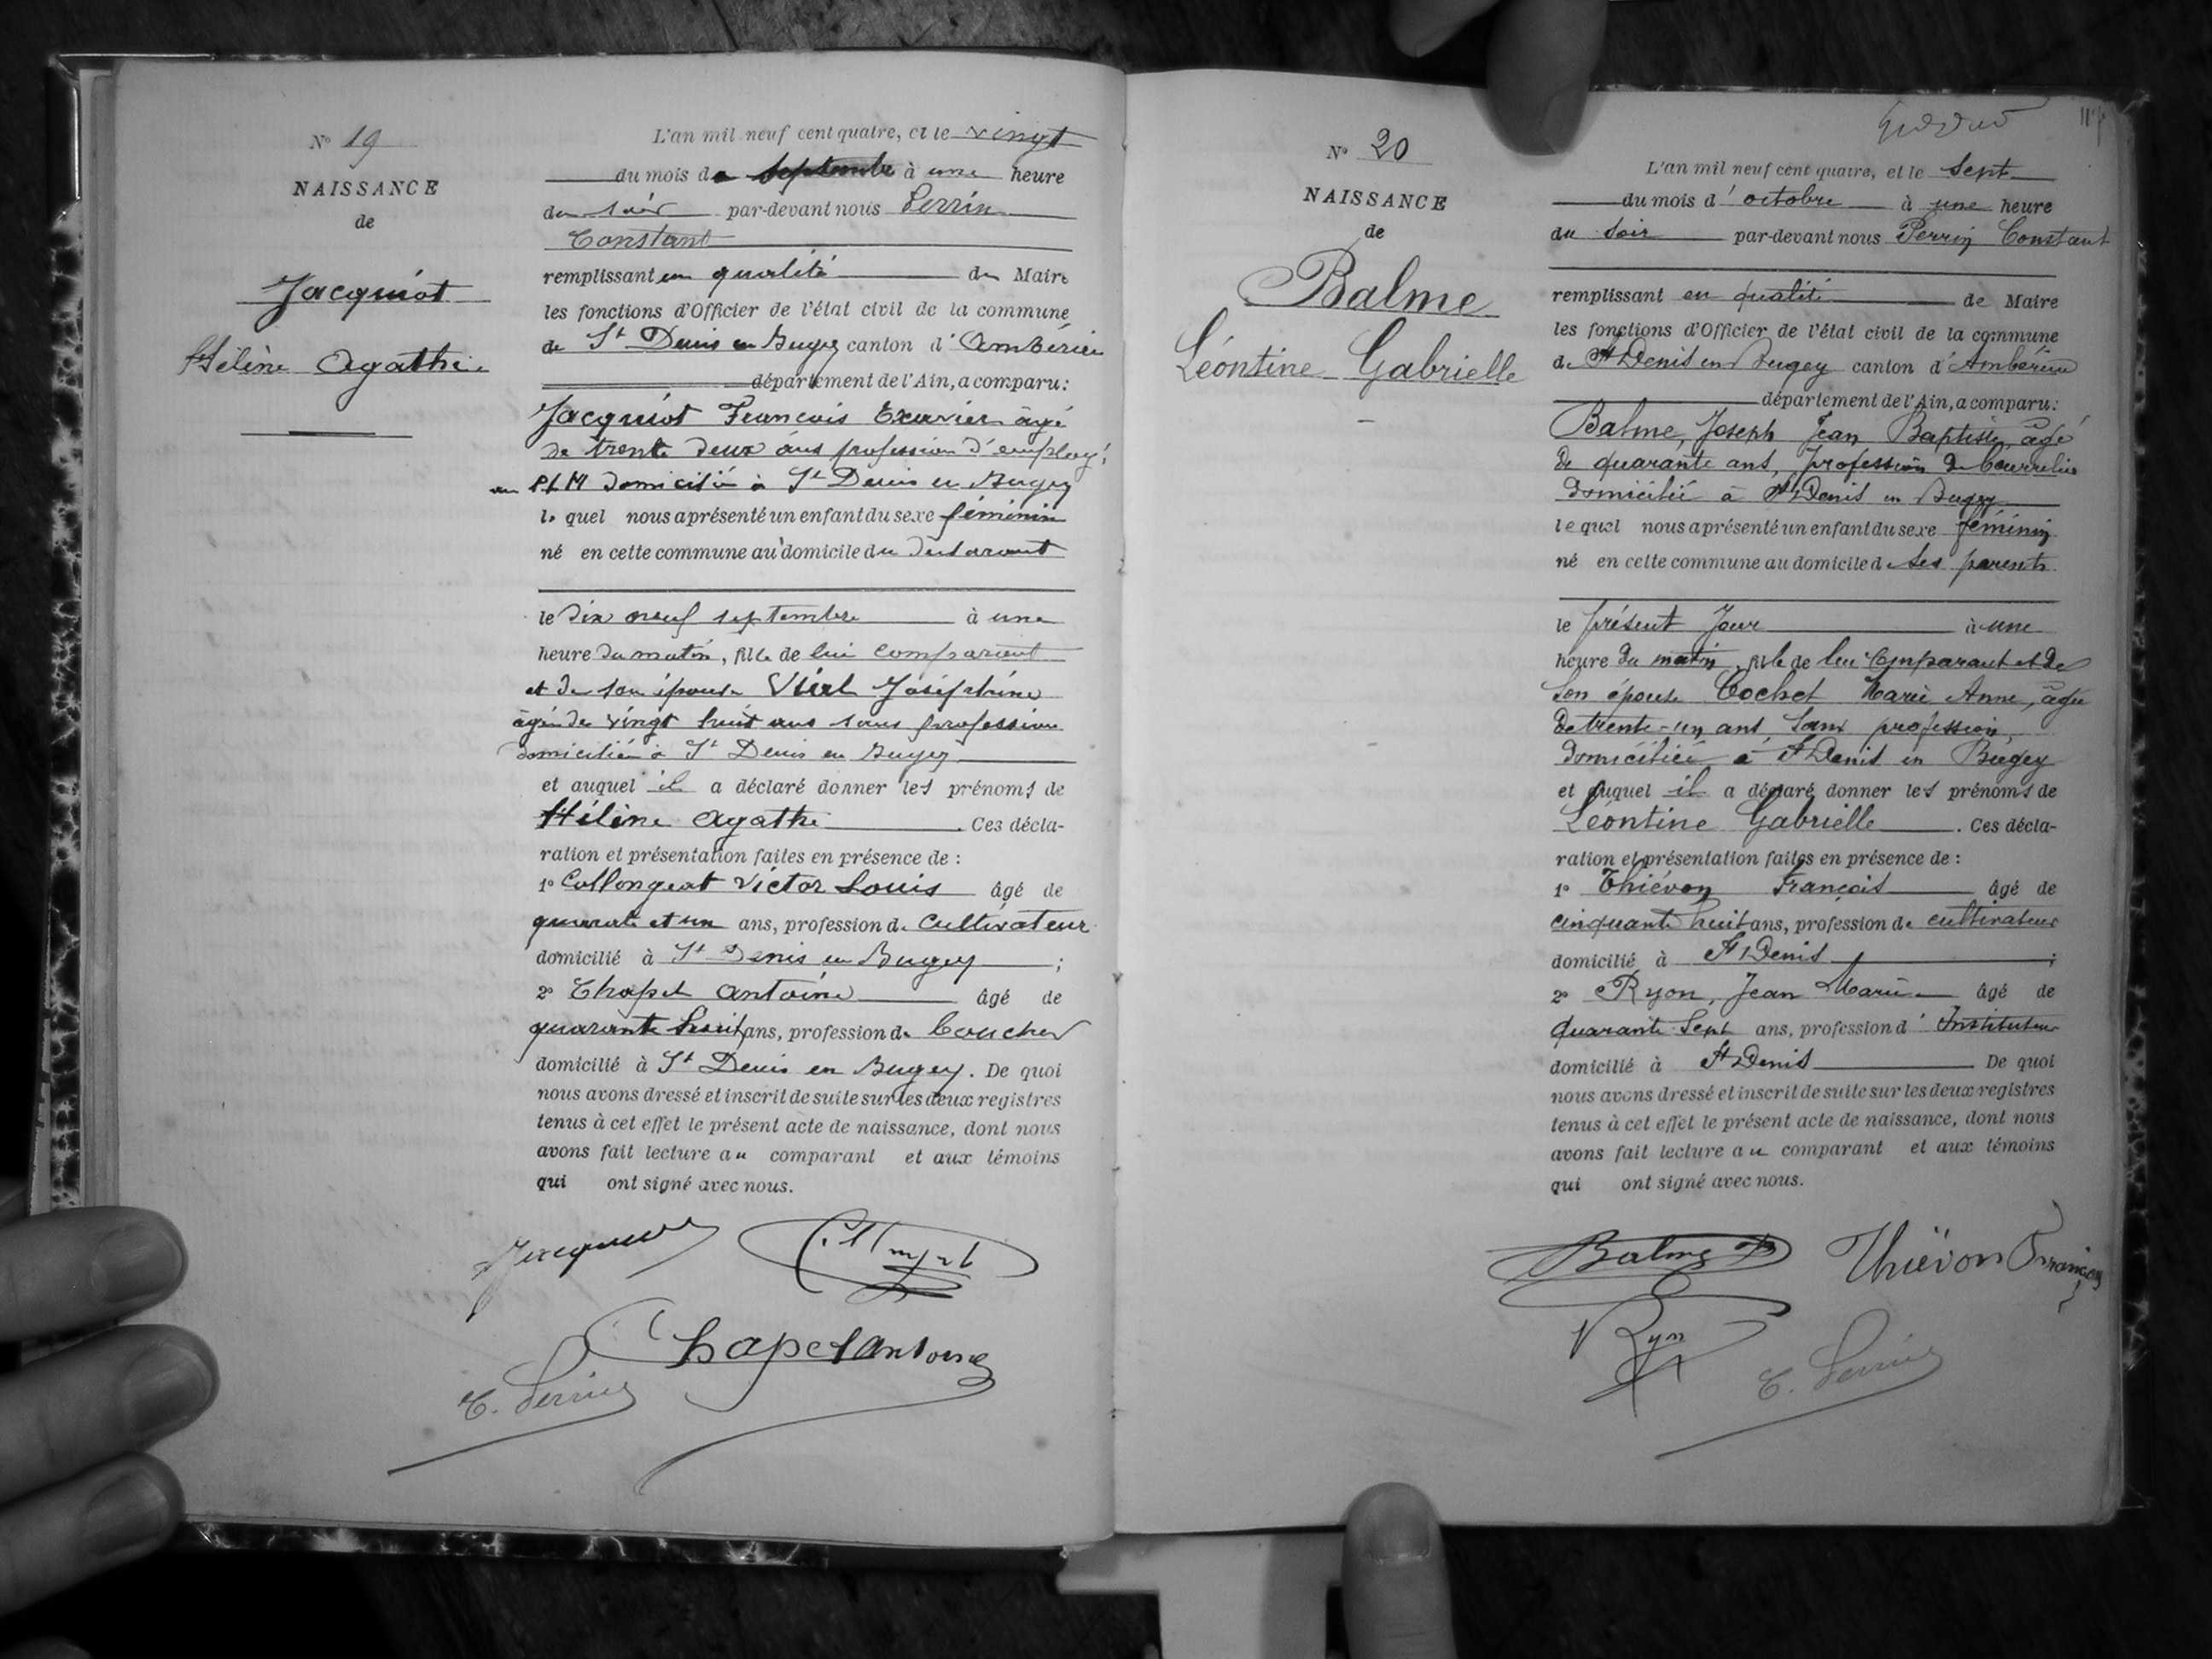 N° 19
NAISSANCE
de
Jacquiot
Hélène Agathe.
L'an mil neuf cent quatre, et le vingt
du mois de septembre à une heure
du soir par-devant nous Perrin
Constant
remplissant en qualité de Maire
les fonctions d'Officier de l'état civil de la commune
de St Denis en Bugey canton d'Ambérieu
département de l'Ain, a comparu :
Jacquiot François Exavier âgé
de trente deux ans profession d'employé
au PLM domicilié à St Denis en Bugey
lequel nous a présenté un enfant du sexe féminin
né en cette commune au domicile du déclarant
le dix neuf septembre à une
heure du matin, fille de lui comparant
et de son épouse Vial Joséphine
âgée de vingt huit ans sans profession
domiciliée à St Denis en Bugey
et auquel il a déclaré donner les prénoms de
Hélène Agathe. Ces décla-
ration et présentation faites en présence de :
1° Collongeat Victor Louis âgé de
quarante et un ans, profession de cultivateur
domicilié à St Denis en Bugey ;
2° Chapel Antoine âgé de
quarante huit ans, profession de boucher
domicilié à St Denis en Bugey. De quoi
nous avons dressé et inscrit de suite sur les deux registres
tenus à cet effet le présent acte de naissance, dont nous
avons fait lecture au comparant et aux témoins
qui ont signé avec nous.
Jacquiot
Chapel Antoine
C. Perrin
N° 20
NAISSANCE
de
Balme
Léontine Gabrielle
L'an mil neuf cent quatre, et le sept
du mois d'octobre à une heure
du soir par-devant nous Perrin Constant
remplissant en qualité de Maire
les fonctions d'Officier de l'état civil de la commune
de St Denis en Bugey canton d'Ambérieu
département de l'Ain, a comparu :
Balme, Joseph Jean Baptiste, âgé
de quarante ans, profession de bourrelier
domicilié à St Denis en Bugey
lequel nous a présenté un enfant du sexe féminin
né en cette commune au domicile de ses parents
le présent jour à une
heure du matin, fille de lui comparant et de
son épouse Cochet Marie Anne, âgée
de trente-un ans, sans profession,
domiciliée à St Denis en Bugey
et auquel il a déclaré donner les prénoms de
Léontine Gabrielle. Ces décla-
ration et présentation faites en présence de :
1° Thiévon François âgé de
cinquante huit ans, profession de cultivateur
domicilié à St Denis ;
2° Ryon, Jean Marie âgé de
quarante sept ans, profession d'Instituteur
domicilié à St Denis De quoi
nous avons dressé et inscrit de suite sur les deux registres
tenus à cet effet le présent acte de naissance, dont nous
avons fait lecture au comparant et aux témoins
qui ont signé avec nous.
Balme Thiévon François
Ryon
C. Perrin